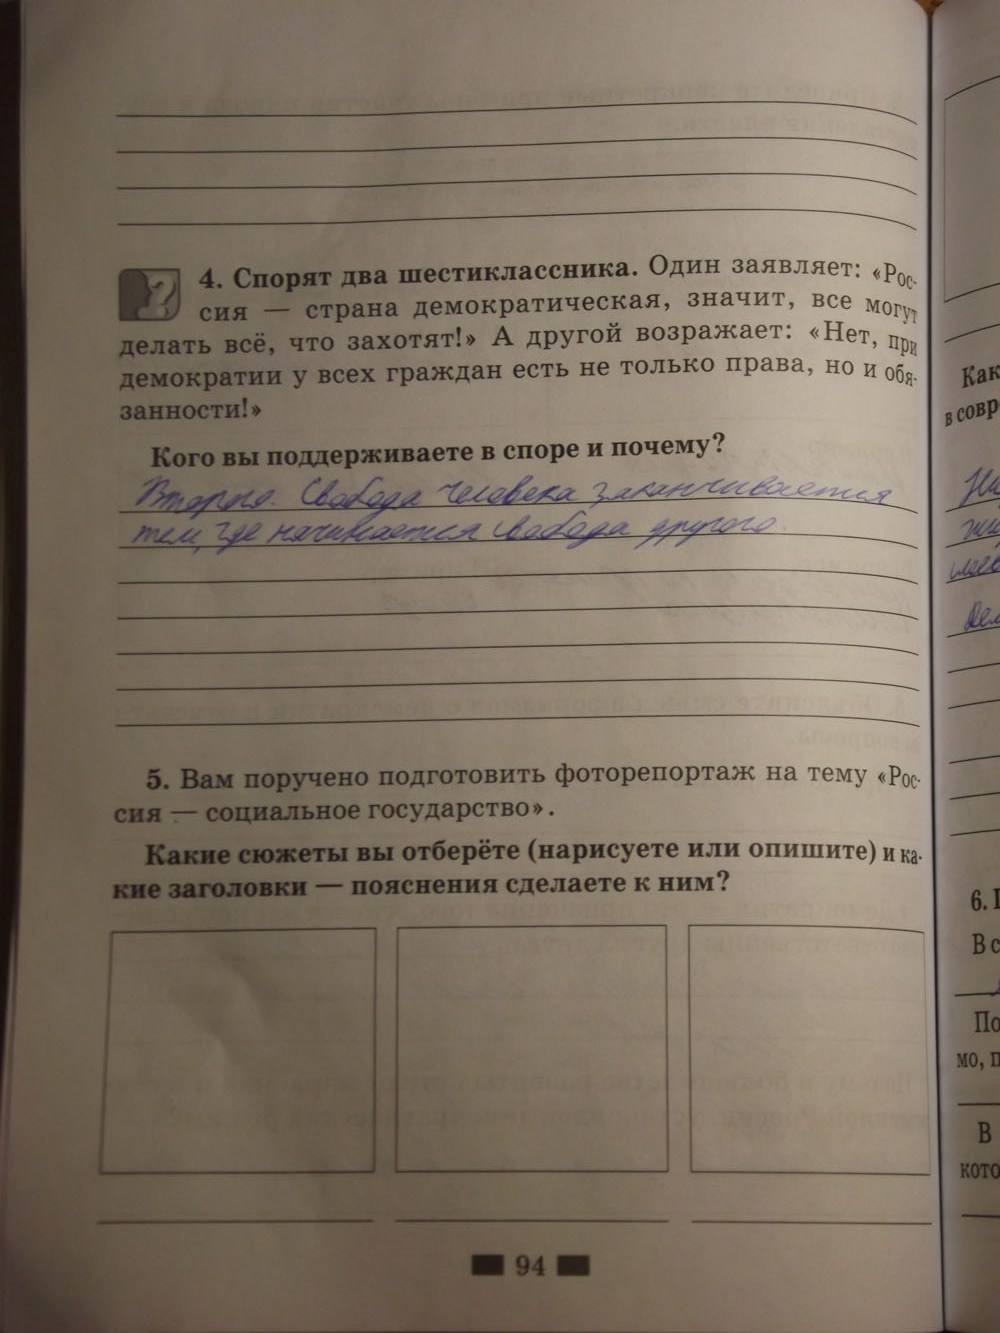 4. Спорят два шестиклассника. Один заявляет: «Рос-
сия — страна демократическая, значит, все могут
делать всё, что захотят!» А другой возражает: «Нет, при
демократии у всех граждан есть не только права, но и обя-
занности!»
Кого вы поддерживаете в споре и почему?
Второго. Свобода человека заканчивается
там, где начинается свобода другого.
5. Вам поручено подготовить фоторепортаж на тему «Рос-
сия — социальное государство».
Какие сюжеты вы отберёте (нарисуете или опишите) и ка-
кие заголовки — пояснения сделаете к ним?
94
Как
в совр
6.
В с
По
мо, п
В
кото